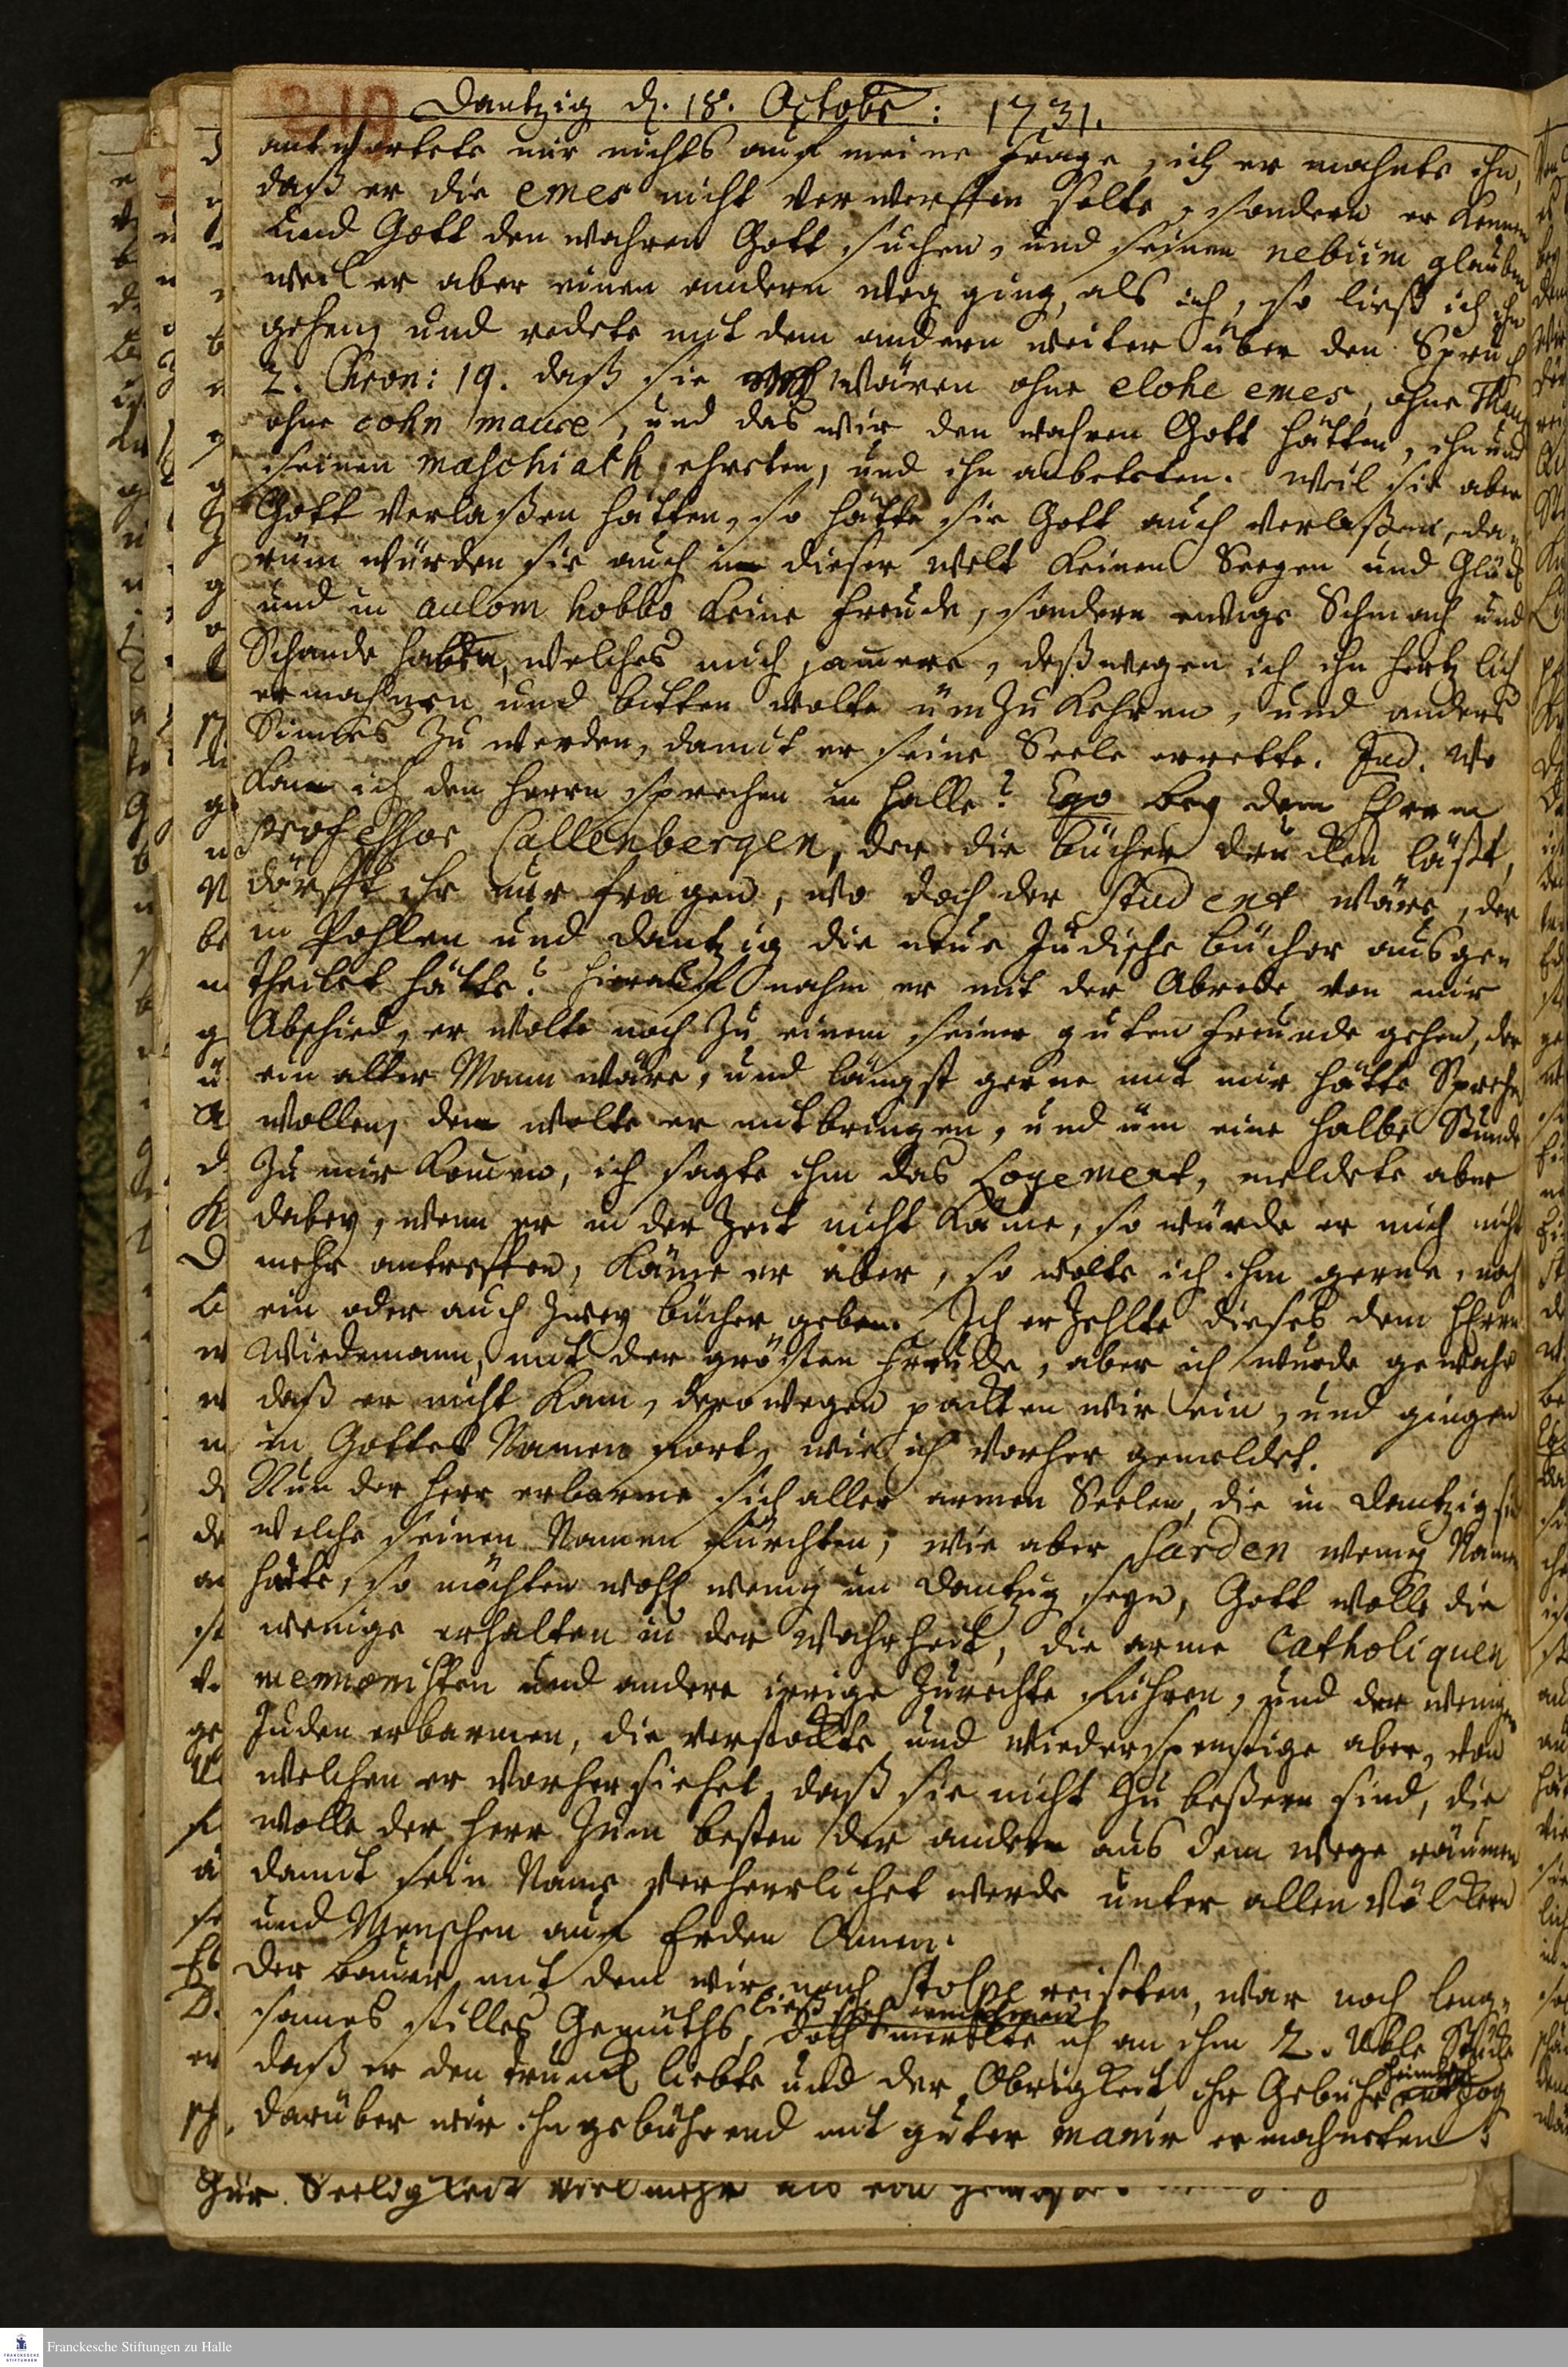 Dantzig d. 18. Octobr: 1731.
antwortete mir nichts auf meine Frage, ich ermahnte ihn,
daß er die emes nicht verwerffen solte, sondern erkennen
und Gott den wahren Gott suchen, und seinen nebiim glauben
weil er aber einen andern weg ging, als ich, so ließ ich ihn
gehen, und redete mit dem andern weiter über den Spruch
2. Chron: 19. daß sie wären ohne elohe emes, ohne
ohne cohn maure, und das wir den wahren Gott hätten, ihn und
seinen maschiach ehreten, und ihn anbeteten. weil sie aber
Gott verlaßen hätten, so hätte sie Gott auch verlaßen, da-
rüm würden sie auch in dieser welt keinen Seegen und Glück
und in aulom habbo keine freude, sondern ewige Schmach und
Schande haben, welches mich jamere, deßwegen ich ihn hertzlich
ermahnen und bitten wolte ümzukehren, und anders
Sinnes zu werden, damit er seine Seele errette. Jud. wo
kan ich den Herrn sprechen in Halle? Ego bey dem Herrn
Professor Callenbergen, der die bücher drucken läßt,
dörfft ihr nur fragen, wo doch der Student wäre, der
in Pohlen und Dantzig die neue Jüdische bücher ausge-
theilet hätte? hierauf nahm er mit der Abrede von mir
Abschied, er wolte noch zu einem seiner guten freunde gehen, der
ein alter Mann wäre, und längst gerne mit mir hätte Sprechen
wollen, den wolte er mitbringen, und üm eine halbe Stunde
zu mir kommen, ich sagte ihm das Logement, meldete aber
dabey, wenn er in der Zeit nicht käme, so würde er mich nicht
mehr antreffen, käme er aber, so wolte ich ihm gerne, noch
ein oder auch zwey bücher geben. Ich erzehlte dieses dem Herrn
Wiedemann, mit der grösten freude, aber ich wurde gewahr
daß er nicht kam, derowegen packten wir ein, und gingen
in Gottes Namen fort, wie ich vorher gemeldet.
Nun der Herr erbarme sich aller armen Seelen, die in Dantzig sind
welche seinen Namen fürchten; wie aber Sarden wenig Namen
hatte, so möchten wohl wenig in Dantzig seyn, Gott wolle die
wenige erhalten in der Wahrheit, die arme Catholiquen
mennonisten und andere irrige zurechte führen, und der wenigen
Juden erbarmen, die verstockte und wiederspenstige aber, von
welchen er vorhersiehet, daß sie nicht zu beßern sind, die
wolle der Herr zum besten der andern aus dem wege räumen
damit sein Name verherrlichet werde unter allen Völckern
und Menschen auf Erden Amen.
Der bauer, mit dem wir nach Stolpe reiseten, war noch leng-
sames stilles Gemüths, ließ sich ermahnen
doch merckte ich an ihm 2. üble Stücke
daß er den trunck liebte und der Obrigkeit ihr Gebühr heimlich entzog
darüber wir ihn gebührend mit guter manir ermahneten
zur Seeligkeit vielmehr als von